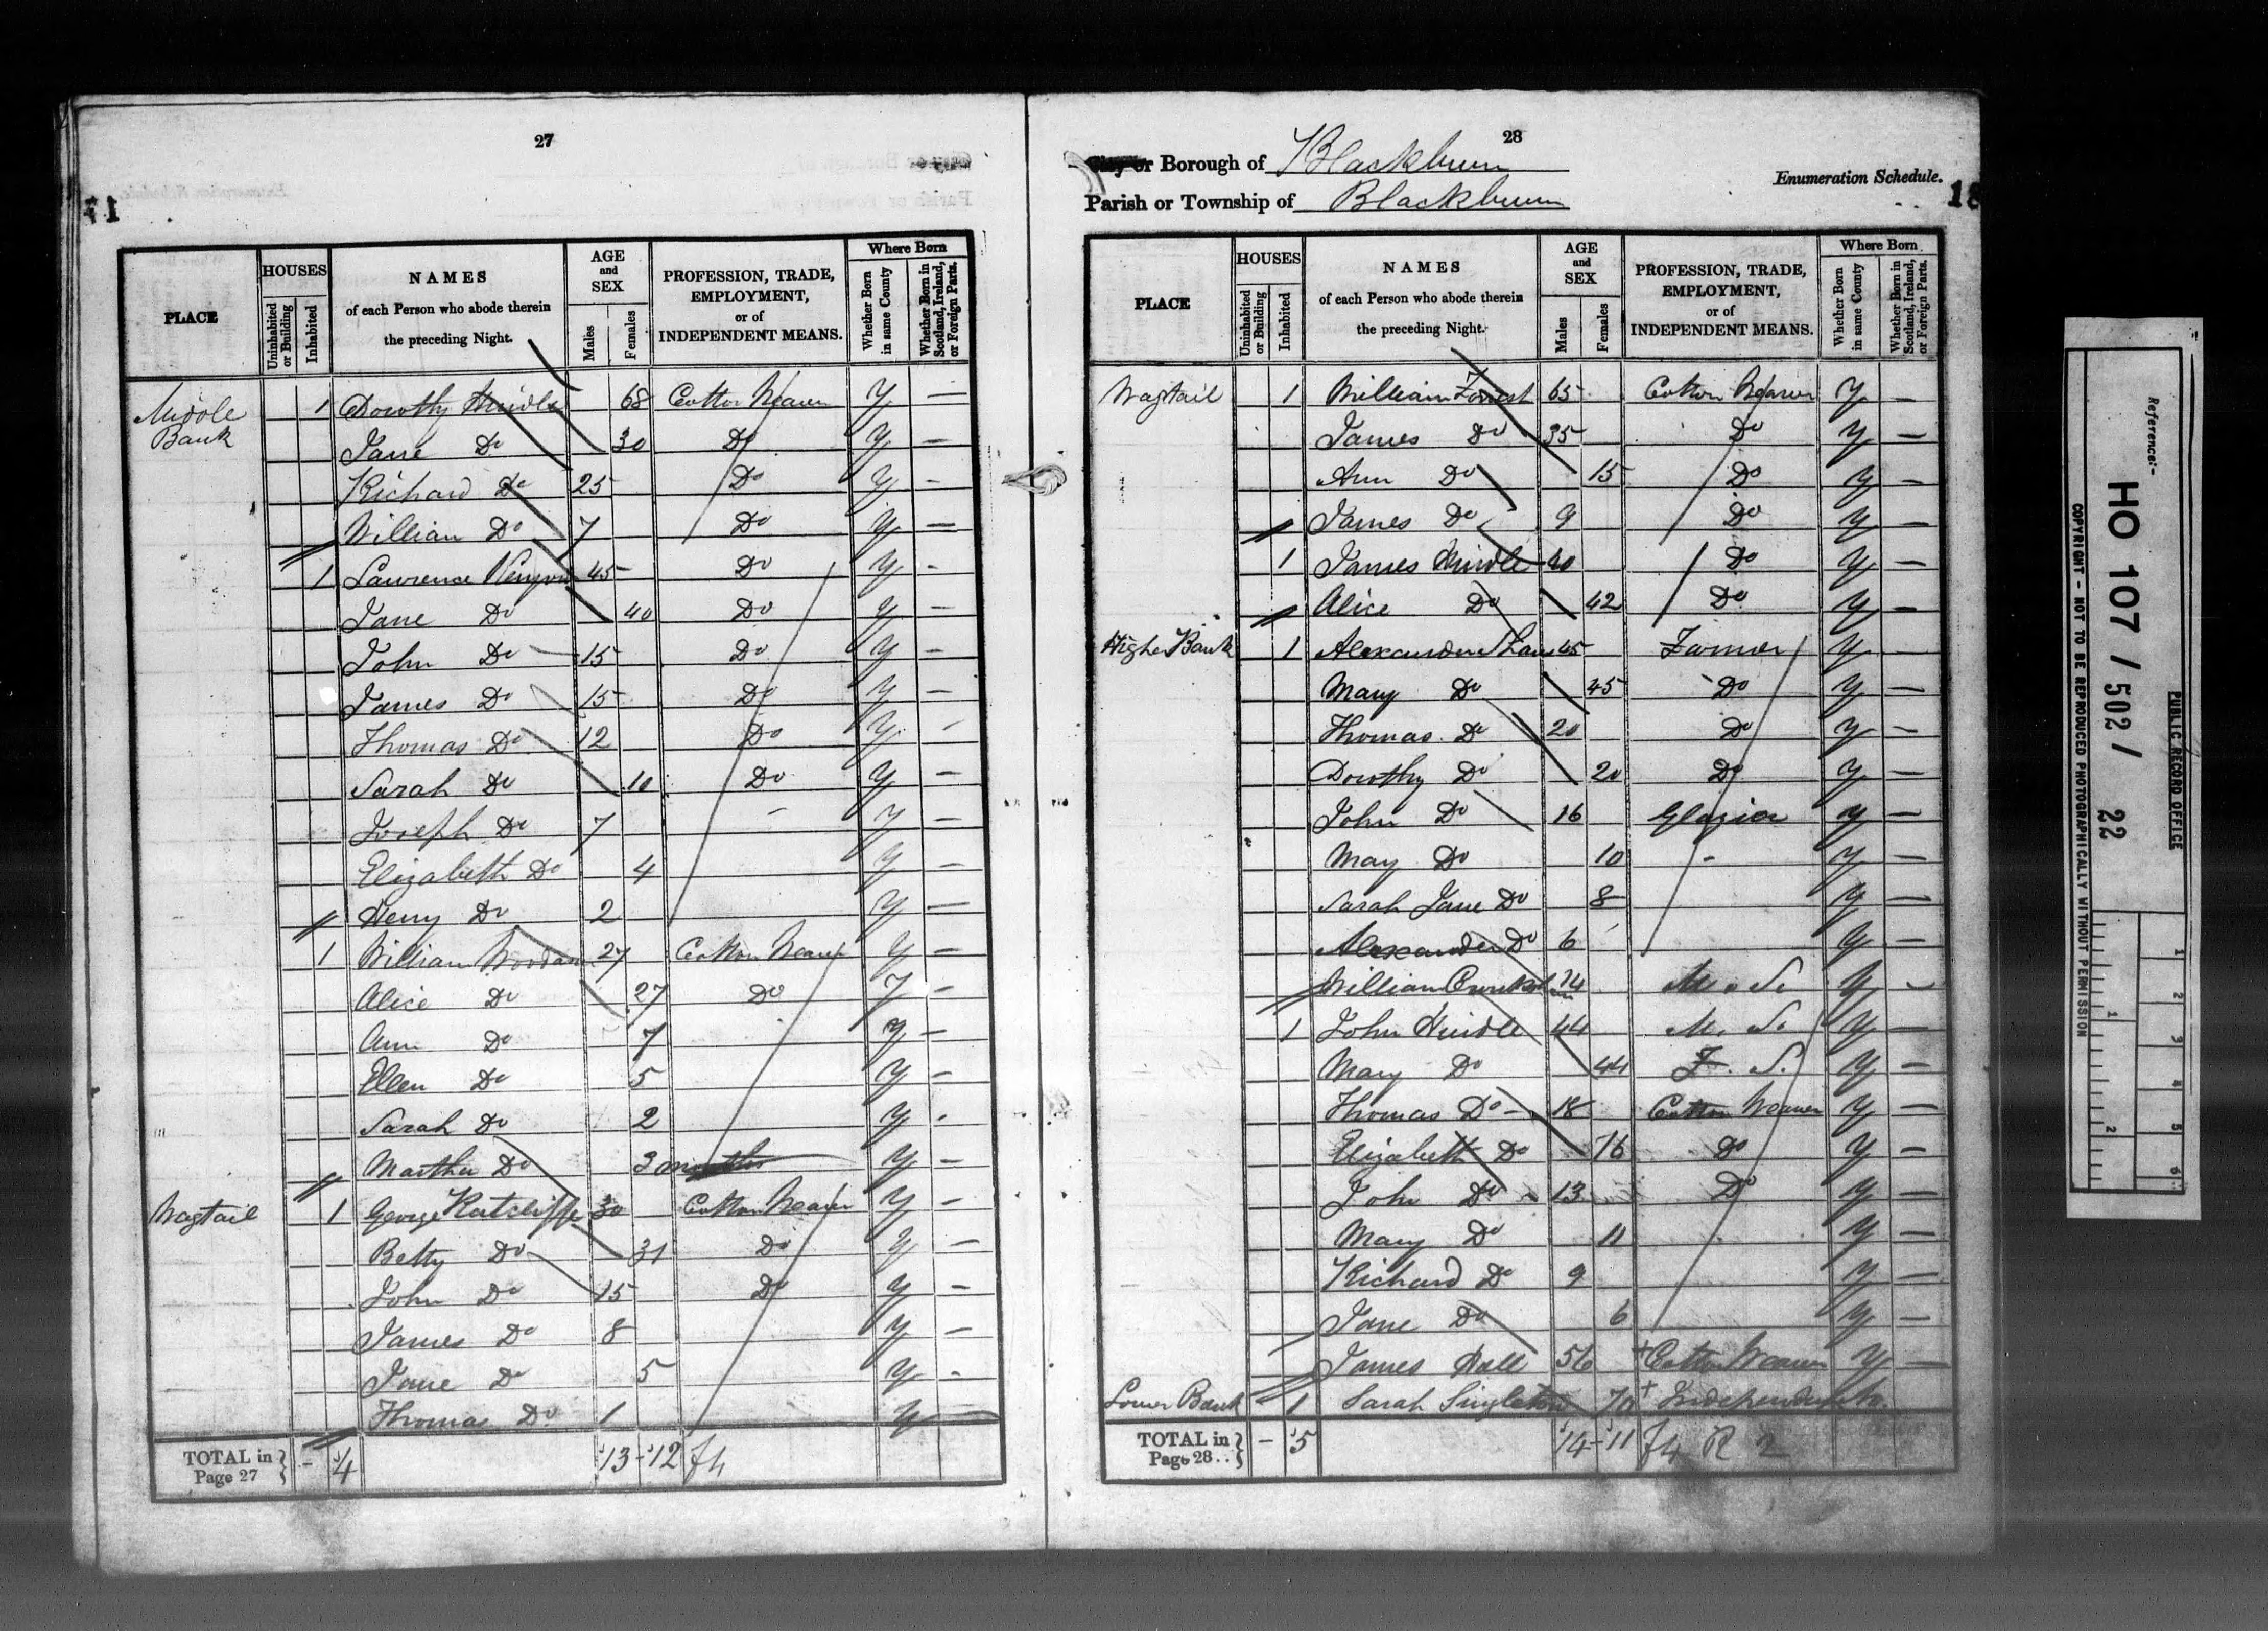 27
71
PLACE
HOUSES
Uninhabited or Building
Inhabited
NAMES
of each Person who abode therein
the preceding Night.
AGE
and
SEX
Males
Females
PROFESSION, TRADE,
EMPLOYMENT,
or of
INDEPENDENT MEANS.
Where Born
Whether Born in same County
Whether Born in Scotland, Ireland, or Foreign Parts.
Midole 1 Dorothy Hindle 68 Cotton Weaver Y —
Bank Jane Do 30 Do Y —
Richard Do 25 Do Y -
William Do 7 Do Y —
1 Lawrence Kenyon 45 Do Y -
Jane Do 40 Do Y —
John Do 15 Do Y —
James Do 15 Do Y —
Thomas Do 12 Do Y -
Sarah Do 10 Do Y —
Joseph Do 7 - Y —
Elizabeth Do 4 Y —
Henry Do 2 Y —
1 William 27 Cotton Weaver Y —
Alice Do 27 Do Y -
Ann Do 7 Y —
Ellen Do 5 Y -
Sarah Do 2 Y -
Martha Do 3 months Y —
Wagtail 1 George Ratcliffe 30 Cotton Weaver Y -
Betty Do 31 Do Y —
John Do 15 Do Y —
James Do 8 Y —
Jane Do 5 Y -
Thomas Do 1 Y —
TOTAL in Page 27 } - 4 13 - 12
28
City or Borough of Blackburn
Enumeration Schedule.
Parish or Township of Blackburn
18
PLACE
HOUSES
Uninhabited or Building
Inhabited
NAMES
of each Person who abode therein
the preceding Night.
AGE
and
SEX
Males
Females
PROFESSION, TRADE,
EMPLOYMENT,
or of
INDEPENDENT MEANS.
Where Born
Whether Born in same County
Whether Born in Scotland, Ireland, or Foreign Parts.
Wagtail 1 William Forrest 65 Cotton Weaver Y -
James Do 35 Do Y —
Ann Do 15 Do Y —
James Do 9 Do Y —
1 James Hindle 40 Do Y —
Alice Do 42 Do Y —
Higher Bank 1 Alexander Shaw 45 Farmer Y —
Mary Do 45 Do Y —
Thomas Do 20 Do Y —
Dorothy Do 20 Do Y —
John Do 16 Glazier Y —
May Do 10 - Y —
Sarah Jane Do 8 Y —
Alexander Do 6 Y —
William 14 M. S. Y -
1 John Hindle 44 M. S. Y —
Mary Do 44 F. S. Y —
Thomas Do 18 Cotton Weaver Y —
Elizabeth Do 16 Do Y —
John Do 13 Do Y —
Mary Do 11 Y —
Richard Do 9 Y —
Jane Do 6 Y —
James Hall 56 + Cotton Weaver Y —
Lower Bank 1 Sarah Singleton 70 + Independent
TOTAL in Page 28 .. } - 5 14 - 11 R 2
Reference:-
HO 107 / 502 / 22
PUBLIC RECORD OFFICE
COPYRIGHT - NOT TO BE REPRODUCED PHOTOGRAPHICALLY WITHOUT PERMISSION
1
2
1
2
3
4
5
6